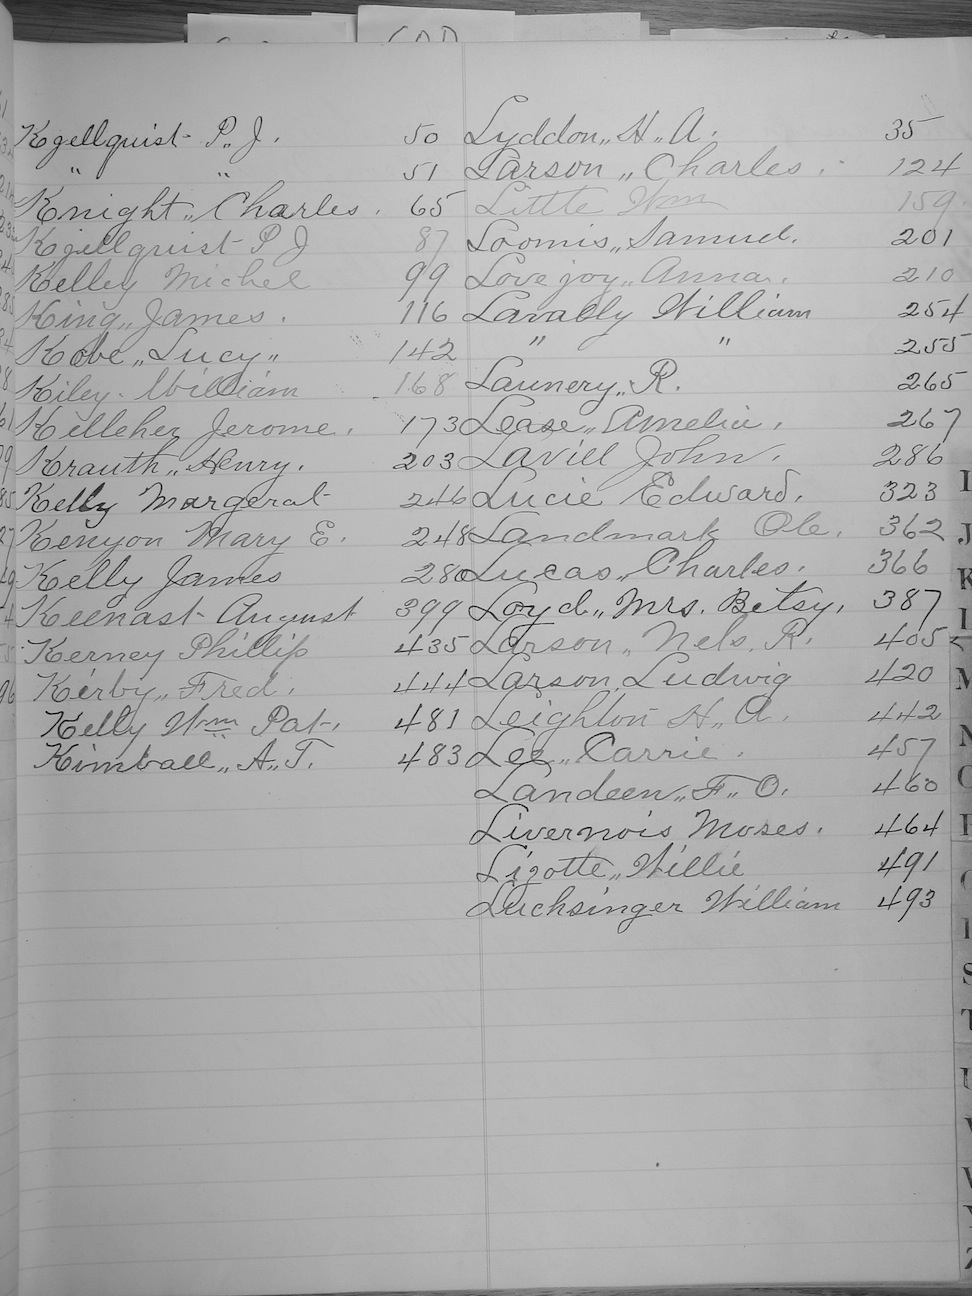 Kjellquist P.J. 50
" " 51
Knight,, Charles. 65
Kjellquist P J 87
Kelley Michel 99
King,, James. 116
Kobe,, Lucy,, 142
Kiley. William 168
Kelleher Jerome. 173
Krauth,, Henry. 203
Kelly Margerat 246
Kenyon Mary E. 248
Kelly James 280
Keenast August 399
Kerney Phillip 435
Kerby,, Fred. 444
Kelly Wm Pat. 481
Kimball,, A.T. 483
Lyddon,, H,, A. 35
Larson,, Charles. 124
Little Wm 159
Loomis,, Samuel. 201
Lovejoy,, Anna. 210
Lavally William 254
" " 255
Launery,, R. 265
Lease,, Amelia. 267
Lavill John. 286
Lucie Edward. 323
Landmark Ole. 362
Lucas,, Charles. 366
Loyd,, Mrs. Betsy. 387
Larson,, Nels. R. 405
Larson, Ludwig 420
Leighton H,, A. 442
Lee,, Carrie. 457
Landeen,, F,, O. 460
Livernois Moses. 464
Lizotte,, Willie 491
Luchsinger William 493
I
J
K
L
M
N
O
P
S
T